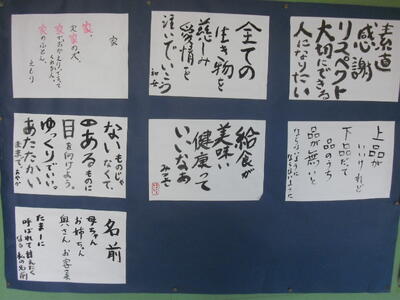 素道
感謝
リスペクト
大切にできる
人になりたい
全ての
生き物を
慈しみ
愛情を
注いでいこう
家
家、
家の人、
家のふとん、
えもり
上品が
いいけれど
下品だて
品のうち
品が無いと
給食が
美味い
健康って
いいなあ
みさ
ないものじゃ
なくて、
あるものに
目を向けよう。
ゆっくりでいい。
あたたかい
ままで。
名前
母ちゃん
お姉ちゃん
奥さん お客さま
たまーに
呼ばれて
私の名前